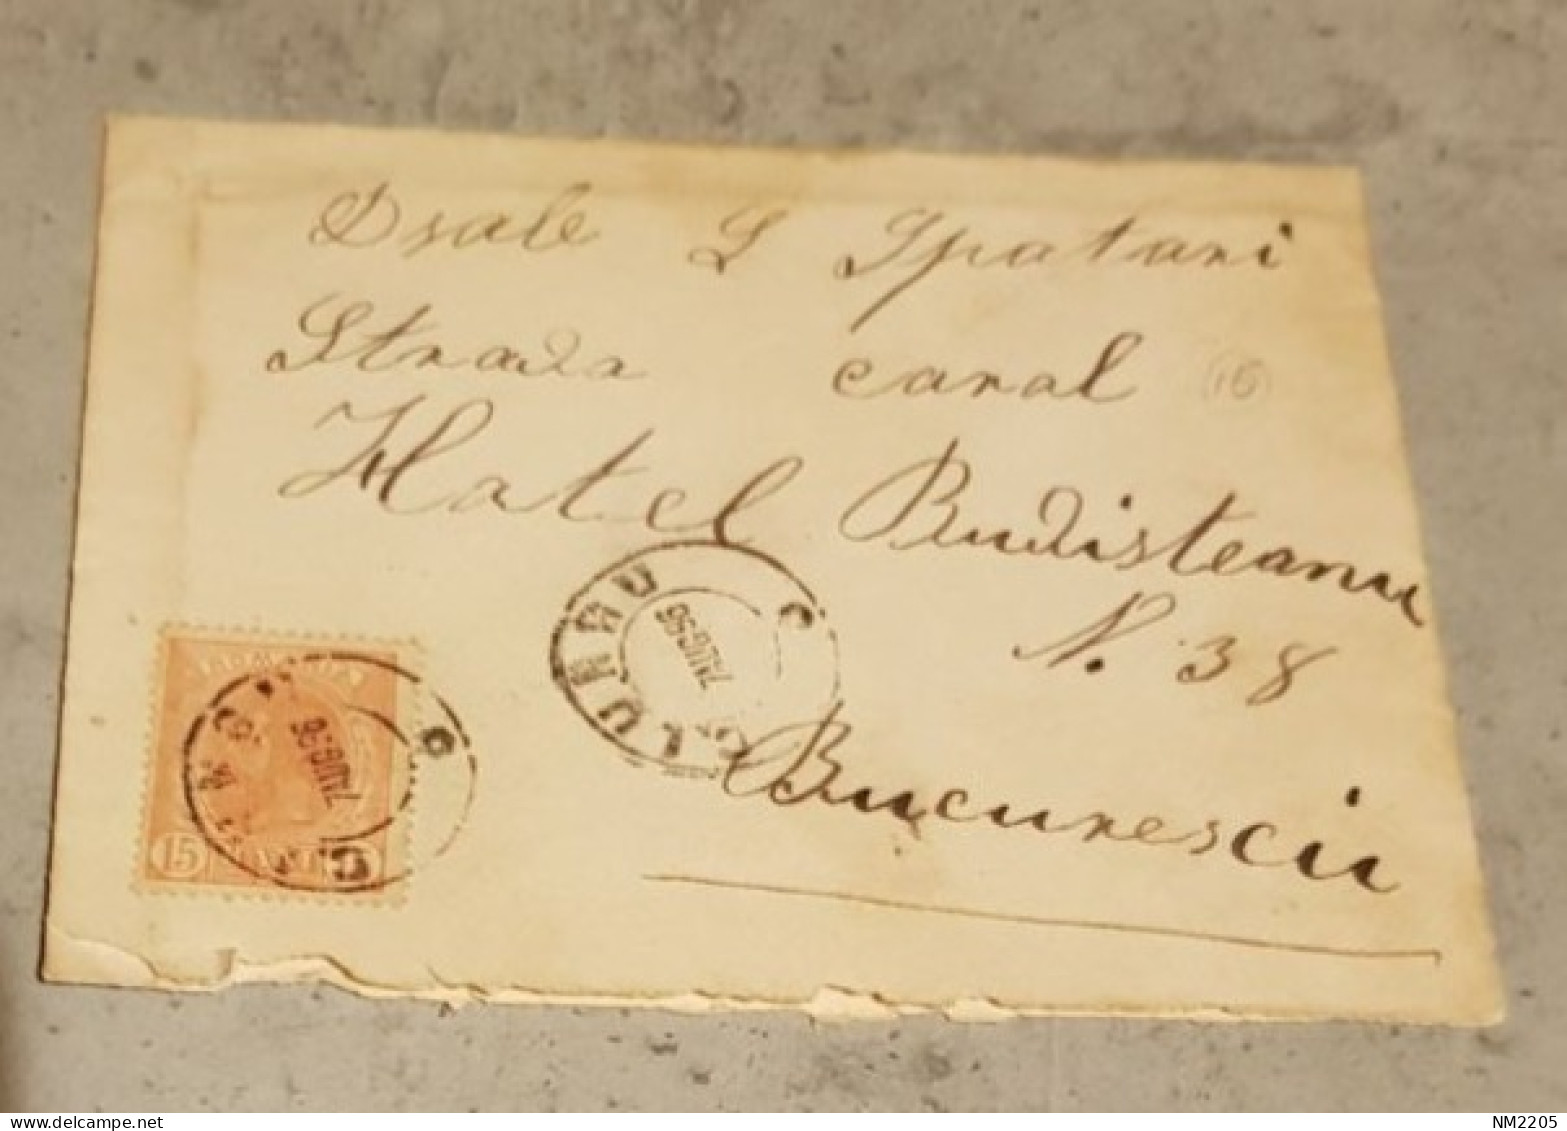 Dsale L Ipatari
Strada canal
Hotel Budisteanu
N. 38
Bucurescii
16
7 AUG 96
7 AUG 96
15
NM2205